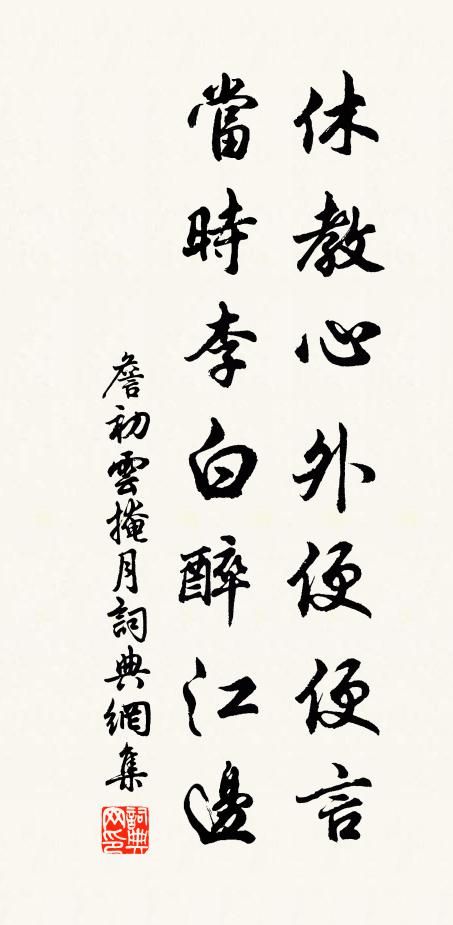 休教心外便便言
當時李白醉江邊
詹初雲掩月詞典網集
詞典網印